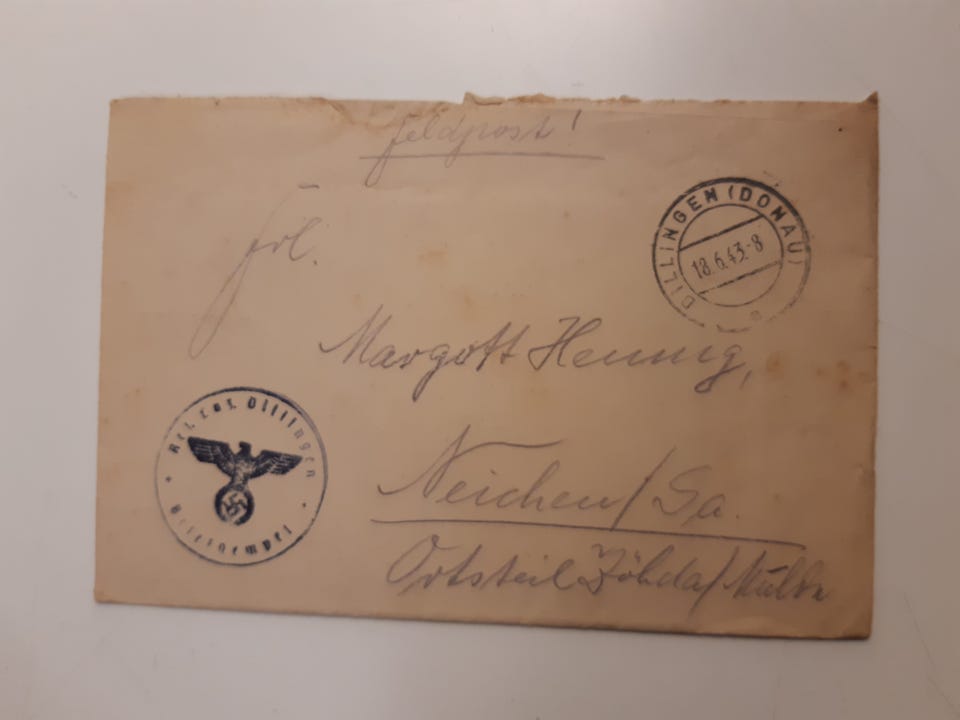 Feldpost!
Frl.
DILLINGEN (DONAU)
18.6.43.-8
Margott Hennig,
Res. Laz. Dillingen
Neichen/Sa.
Ortsteil Döhda/Mulde